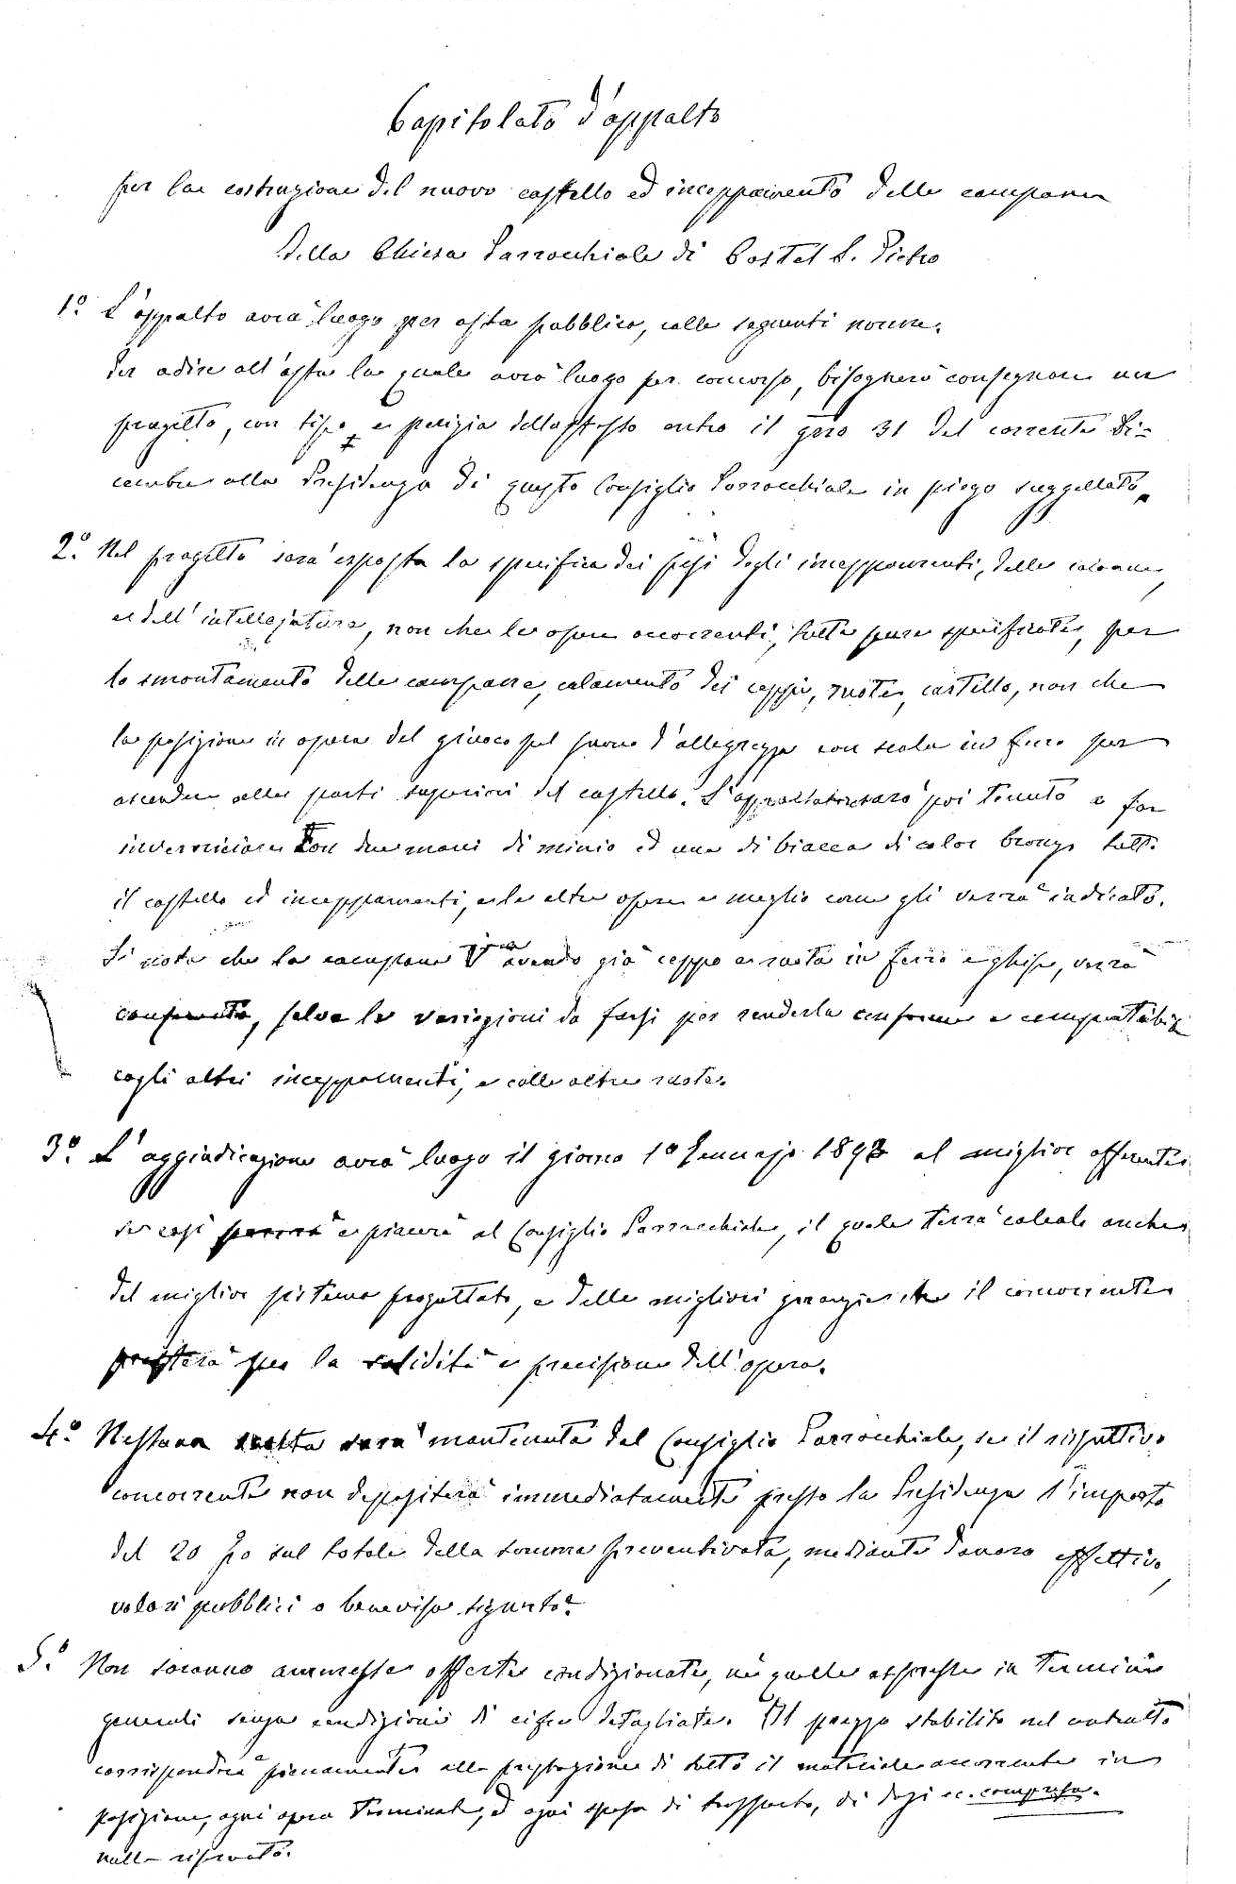 Capitolato d'appalto
per la costruzione del nuovo castello ed inceppamento delle campane
della Chiesa Parrocchiale di Castel S. Pietro
1º. L'appalto avrà luogo per asta pubblica, colle seguenti norme.
Per adire all'asta la quale avrà luogo per concorso, bisognerà consegnare un
progetto, con tipo e perizia dello stesso entro il gno 31 del corrente Di=
cembre alla Presidenza di questo Consiglio Parrocchiale in piego suggellato.
2º. Nel progetto sarà esposta la specifica dei pesi degli inceppamenti, delle
e dell'intellajatura, non che le opere occorrenti, tutte pure specificate, per
lo smontamento delle campane, calamento dei ceppi, ruote, castello, non che
la posizione in opera del giuoco pel suono d'allegrezza con scala in ferro per
ascendere alle parti superiori del castello. L'appaltatore sarà poi tenuto a far
inverniciare con due mani di minio ed una di biacca di color bronzo tutto
il castello ed inceppamenti, e le altre opere e meglio come gli verrà indicato.
Si nota che la campana Vª avendo già ceppo e ruota in ferro e ghisa, verrà
conservata, salvo le variazioni da farsi per renderla conforme e compatibile
cogli altri inceppamenti, e colle altre ruote.
3º. L'aggiudicazione avrà luogo il giorno 1º Gennajo 1893 al miglior offerente
se così parrà e piacerà al Consiglio Parrocchiale, il quale terrà calcolo anche
del miglior sistema progettato, e delle migliori garanzie che il concorrente
presterà per la solidità e precisione dell'opera.
4º. Nessuna scelta sarà mantenuta dal Consiglio Parrocchiale, se il rispettivo
concorrente non depositerà immediatamente presso la Presidenza l'importo
del 20 p% sul totale della somma preventivata, mediante danaro effettivo,
valori pubblici o benevisa sigurtà.
5º. Non saranno ammesse offerte condizionate, nè quelle espresse in termini
generali senza condizioni di cifre detagliate. Il prezzo stabilito nel contratto
corrisponderà pienamente alla prestazione di tutto il materiale occorrente in
posizione, ogni opera terminata, ed ogni spesa di trasporto, di dazi ec. compresa.
nulla riservato.